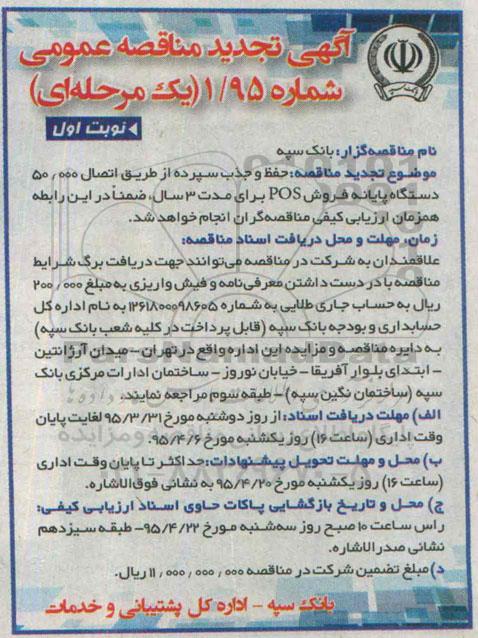 آگهی تجدید مناقصه عمومی
شماره ۱/۹۵ (یک مرحله‌ای)
نوبت اول
نام مناقصه‌گزار: بانک سپه
موضوع تجدید مناقصه: حفظ و جذب سپرده از طریق اتصال ۵۰٫۰۰۰
دستگاه پایانه فروش POS برای مدت ۳ سال، ضمناً در این رابطه
همزمان ارزیابی کیفی مناقصه‌گران انجام خواهد شد.
زمان، مهلت و محل دریافت اسناد مناقصه:
علاقمندان به شرکت در مناقصه می‌توانند جهت دریافت برگ شرایط
مناقصه با در دست داشتن معرفی‌نامه و فیش واریزی به مبلغ ۲۰۰٫۰۰۰
ریال به حساب جاری طلایی به شماره ۱۲۶۱۸۰۰۰۹۸۶۰۵ به نام اداره کل
حسابداری و بودجه بانک سپه (قابل پرداخت در کلیه شعب بانک سپه)
به دایره مناقصه و مزایده این اداره واقع در تهران – میدان آرژانتین
– ابتدای بلوار آفریقا – خیابان نوروز – ساختمان ادارات مرکزی بانک
سپه (ساختمان نگین سپه) – طبقه سوم مراجعه نمایند.
الف) مهلت دریافت اسناد: از روز دوشنبه مورخ ۹۵/۳/۳۱ لغایت پایان
وقت اداری (ساعت ۱۶) روز یکشنبه مورخ ۹۵/۴/۶.
ب) محل و مهلت تحویل پیشنهادات: حداکثر تا پایان وقت اداری
(ساعت ۱۶) روز یکشنبه مورخ ۹۵/۴/۲۰ به نشانی فوق‌الاشاره.
ج) محل و تاریخ بازگشایی پاکات حاوی اسناد ارزیابی کیفی:
راس ساعت ۱۰ صبح روز سه‌شنبه مورخ ۹۵/۴/۲۲- طبقه سیزدهم
نشانی صدرالاشاره.
د) مبلغ تضمین شرکت در مناقصه ۱۱٫۰۰۰٫۰۰۰٫۰۰۰ ریال.
بانک سپه – اداره کل پشتیبانی و خدمات